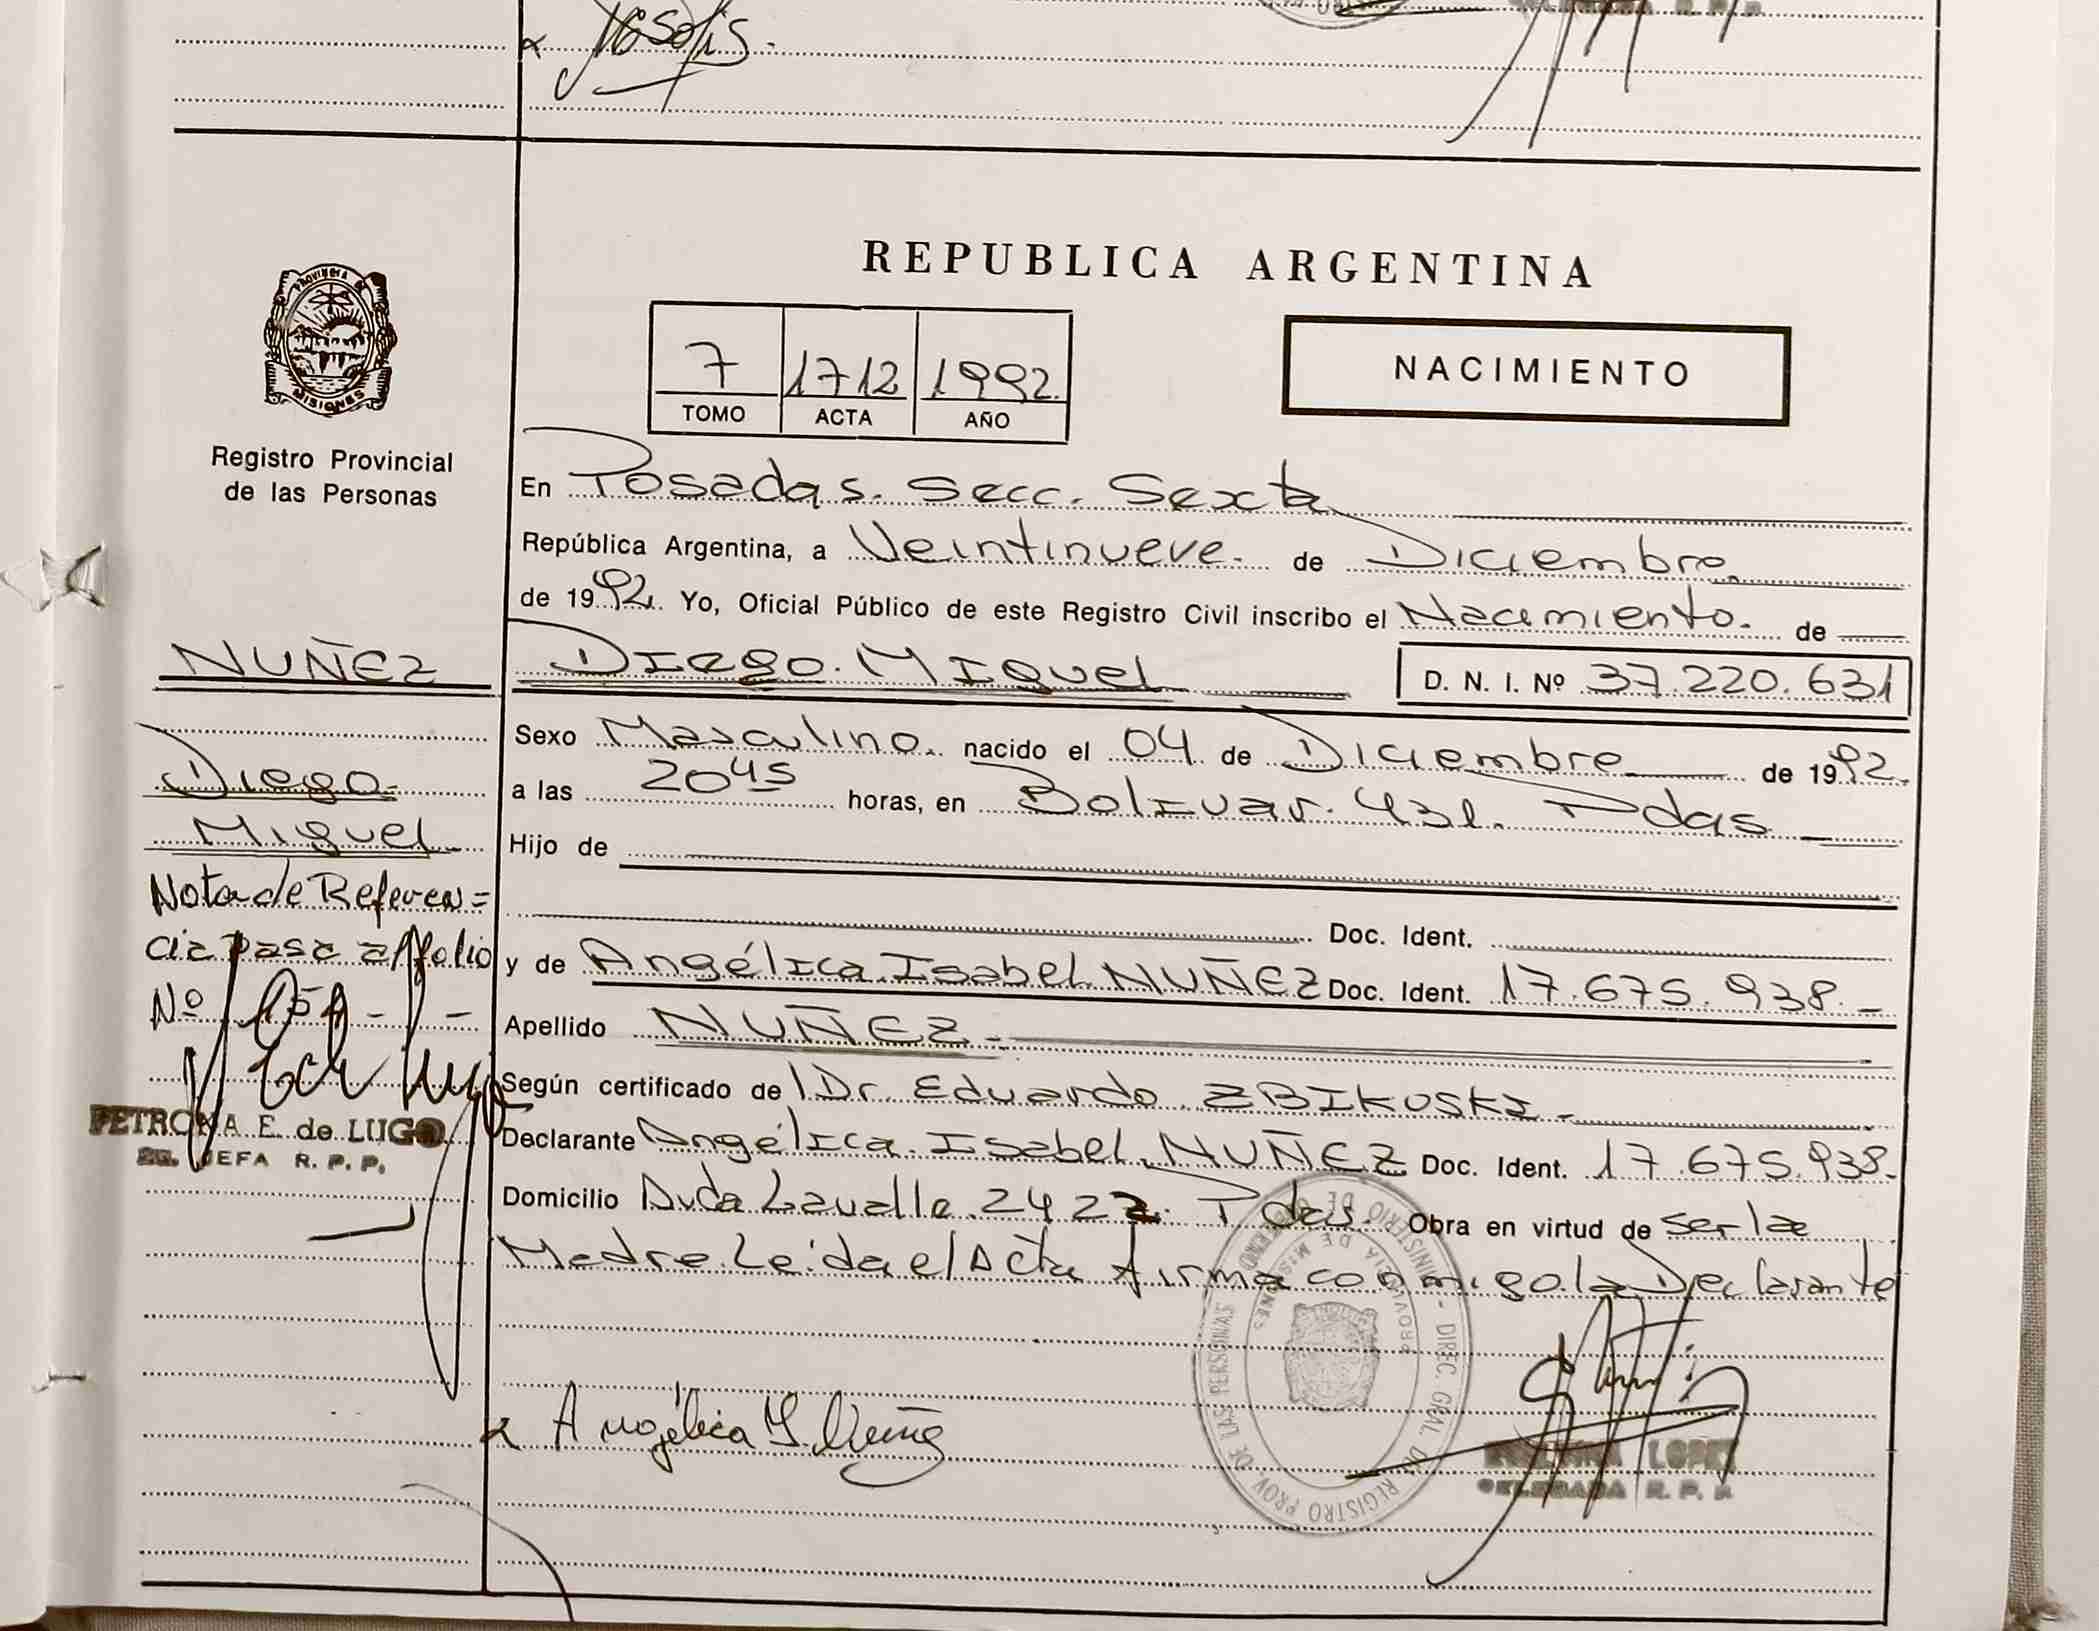 REPUBLICA ARGENTINA
PROVINCIA DE
MISIONES
7 1712 1992.
TOMO ACTA AÑO
NACIMIENTO
Registro Provincial
de las Personas
En Posadas. Secc. Sexta
República Argentina, a Veintinueve. de Diciembre.
de 1992. Yo, Oficial Público de este Registro Civil inscribo el Nacimiento. de
NUÑEZ Diego. Miguel D. N. I. Nº 37.220.631
Sexo Masculino. nacido el 04 de Diciembre de 1992.
a las 2045 horas, en Bolivar. 431. Pdas
Hijo de
Doc. Ident.
y de Angélica Isabel NUÑEZ Doc. Ident. 17.675.938.
Apellido NUÑEZ
Según certificado de Dr. Eduardo ZBIKOSKI
Declarante Angélica Isabel NUÑEZ Doc. Ident. 17.675.938.
Domicilio Avda Lavalle 2422. Pdas. Obra en virtud de ser la
Madre. Leida el Acta firma conmigo la Declarante
Diego
Miguel
Nota de Referen=
cia pasa al folio
Nº
PETRONA E. de LUGO
JEFA R. P. P.
Angélica I. Nuñez
LOPEZ
DELEGADA R. P. P.
MINISTERIO DE GOBIERNO - DIREC. GRAL. DE REGISTRO PROV DE LAS PERSONAS
PROVINCIA DE MISIONES